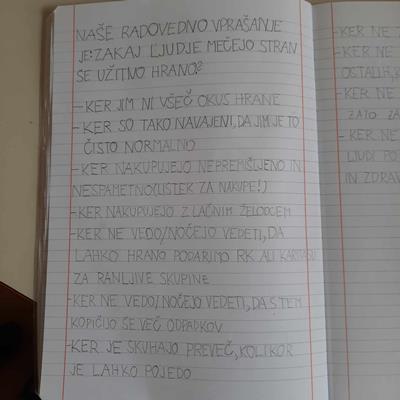 NAŠE RADOVEDNO VPRAŠANJE
JE: ZAKAJ LJUDJE MEČEJO STRAN
ŠE UŽITNO HRANO?
-KER JIM NI VŠEČ OKUS HRANE
-KER SO TAKO NAVAJENI, DA JIM JE TO
ČISTO NORMALNO
-KER NAKUPUJEJO NEPREMIŠLJENO IN
NESPAMETNO (LISTEK ZA NAKUPE!)
-KER NAKUPUJEJO Z LAČNIM ŽELODCEM
-KER NE VEDO/NOČEJO VEDETI, DA
LAHKO HRANO PODARIMO RK ALI KARITASU
ZA RANLJIVE SKUPINE
-KER NE VEDO/NOČEJO VEDETI, DA S TEM
KOPIČIJO ŠE VEČ ODPADKOV
-KER JE SKUHAJO PREVEČ, KOLIKOR
JE LAHKO POJEDO
-KER NE
-KER NE
OSTALIH
-KER NE
ZATO
-KER NE
LJUDI
IN